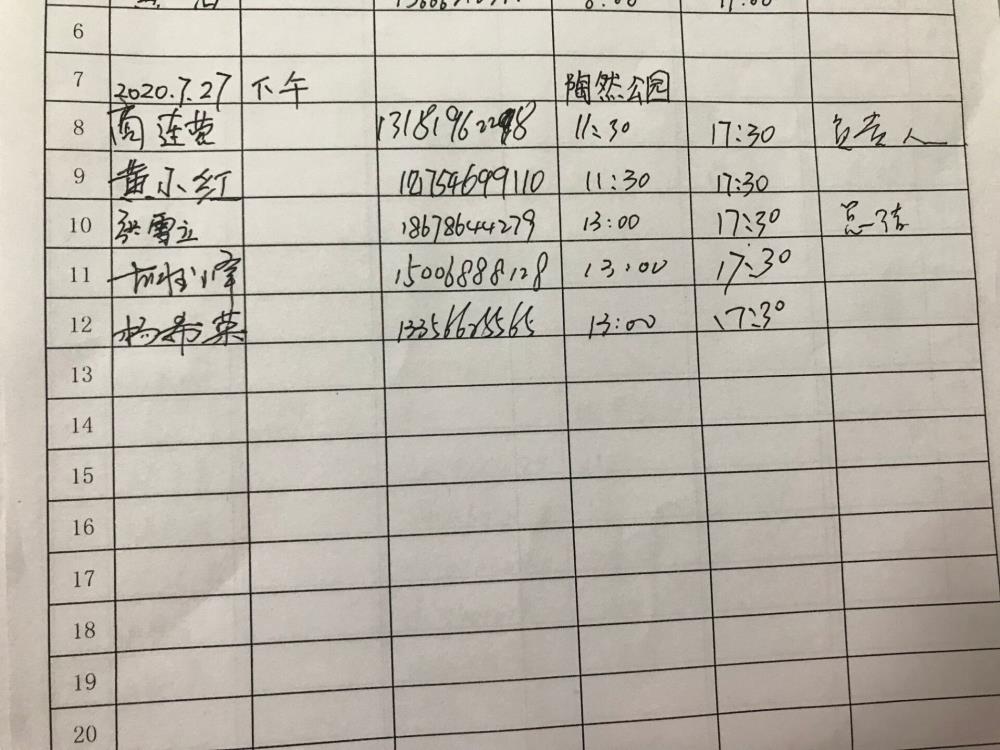 8:00 17:00
6
7 2020.7.27 下午 陶然公园
8 连 11:30 17:30 负责人
9 黄小红 18754699110 11:30 17:30
10 张雪立 18678644279 13:00 17:30 总结
11 15006888128 13:00 17:30
12 杨希荣 13356625565 13:00 17:30
13
14
15
16
17
18
19
20